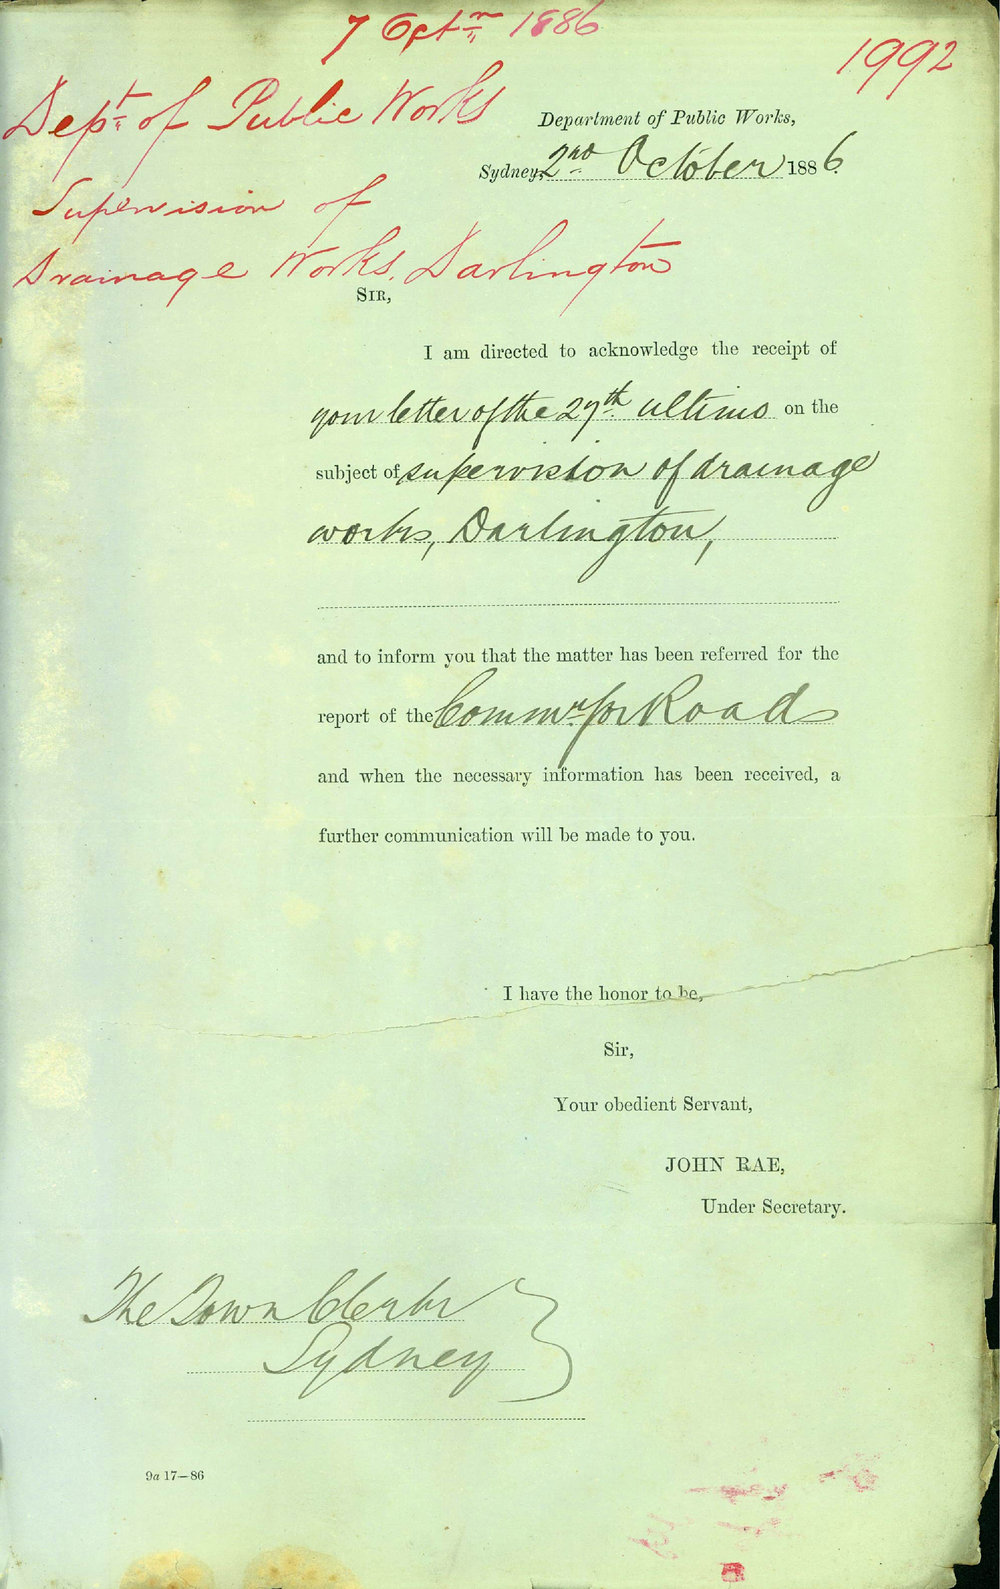 7 Octr 1886
1992
Dept of Public Works
Department of Public Works,
Sydney, 2nd October 1886.
Supervision of
Drainage Works, Darlington
SIR,
I am directed to acknowledge the receipt of
your letter of the 27th ultimo on the
subject of supervision of drainage
works, Darlington,
and to inform you that the matter has been referred for the
report of the Commr for Roads
and when the necessary information has been received, a
further communication will be made to you.
I have the honor to be,
Sir,
Your obedient Servant,
JOHN RAE,
Under Secretary.
The Town Clerk
Sydney
9a 17—86